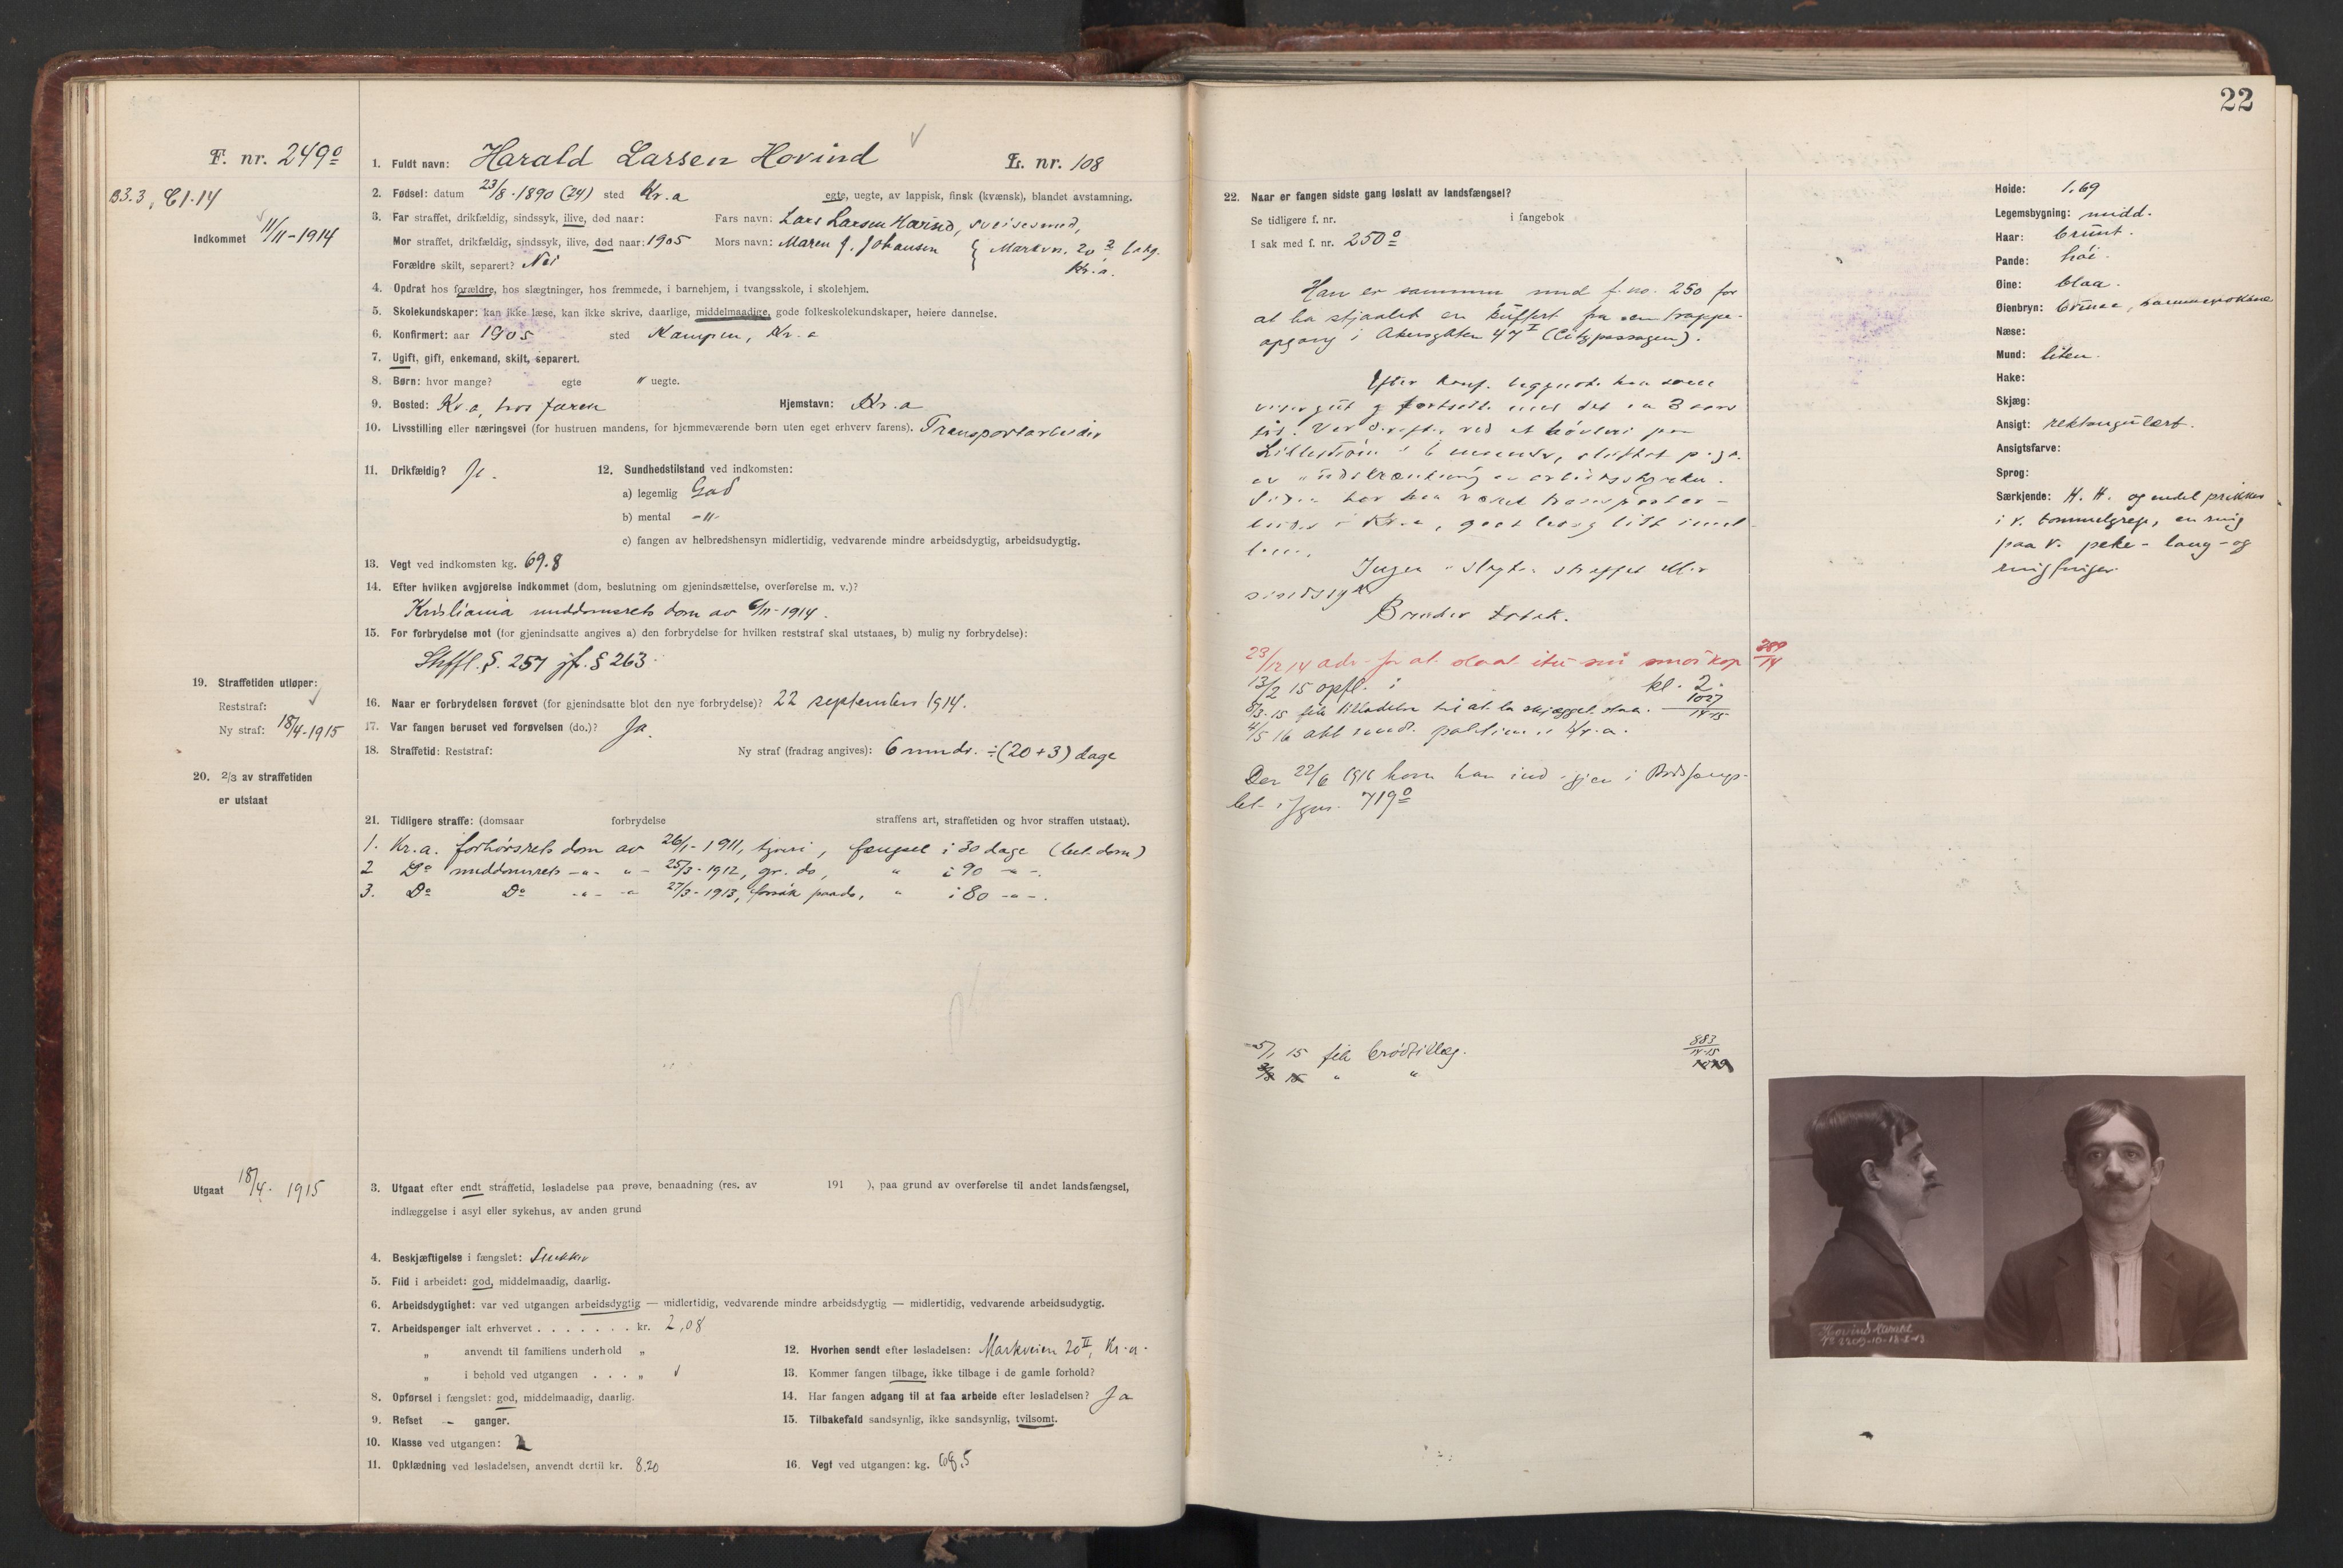 F. nr. 249º
B3.3, C1.14
Indkommet 11/11-1914
1. Fuldt navn: Harald Larsen Hovind
L. nr. 108
2. Fødsel: datum 23/8-1890 (24) sted Kr.a egte, uegte, av lappisk, finsk (kvænsk), blandet avstamning.
3. Far straffet, drikfældig, sindssyk, ilive, død naar: Fars navn: Lars Larsen Hovind, sveisesmed,
Mor straffet, drikfældig, sindssyk, ilive, død naar: 1905 Mors navn: Maren J. Johansen { Markvn. 20
Forældre skilt, separert? Nei Kr.a.
4. Opdrat hos forældre, hos slægtninger, hos fremmede, i barnehjem, i tvangsskole, i skolehjem.
5. Skolekundskaper: kan ikke læse, kan ikke skrive, daarlige, middelmaadige, gode folkeskolekundskaper, høiere dannelse.
6. Konfirmert: aar 1905 sted Kampen, Kr.a
7. Ugift, gift, enkemand, skilt, separert.
8. Børn: hvor mange? egte " uegte.
9. Bosted: Kr.a, hos faren Hjemstavn: Kr.a
10. Livsstilling eller næringsvei (for hustruen mandens, for hjemmeværende børn uten eget erhverv farens). Transportarbeider
11. Drikfældig? Ja.
12. Sundhedstilstand ved indkomsten:
a) legemlig God
b) mental -"-
c) fangen av helbredshensyn midlertidig, vedvarende mindre arbeidsdygtig, arbeidsudygtig.
13. Vegt ved indkomsten kg. 69.8
14. Efter hvilken avgjørelse indkommet (dom, beslutning om gjenindsættelse, overførelse m. v.)?
Kristiania meddomsrets dom av 6/11-1914.
15. For forbrydelse mot (for gjenindsatte angives a) den forbrydelse for hvilken reststraf skal utstaaes, b) mulig ny forbrydelse):
Strffl. §. 257 jf. § 263
19. Straffetiden utløper:
Reststraf:
Ny straf: 18/4-1915
16. Naar er forbrydelsen forøvet (for gjenindsatte blot den nye forbrydelse)? 22 september 1914.
17. Var fangen beruset ved forøvelsen (do.)? Ja.
18. Straffetid: Reststraf: Ny straf (fradrag angives): 6 mndr. ÷ (20+3) dage
20. 2/3 av straffetiden
er utstaat
21. Tidligere straffe: (domsaar forbrydelse straffens art, straffetiden og hvor straffen utstaat).
1. Kr.a. forhørsrets dom av 26/1-1911, tyveri, fængsel i 30 dage (bet. dom)
2 Dº meddomsrets -"- "- 25/3-1912, gr. do, " i 90 -"-.
3. Dº Dº -"- -" 27/3-1913, forsøk paa do, " i 80 -"-.
Utgaat 18/4. 1915
3. Utgaat efter endt straffetid, løsladelse paa prøve, benaadning (res. av 191 ), paa grund av overførelse til andet landsfængsel,
indlæggelse i asyl eller sykehus, av anden grund
4. Beskjæftigelse i fængslet:
5. Flid i arbeidet: god, middelmaadig, daarlig.
6. Arbeidsdygtighet: var ved utgangen arbeidsdygtig — midlertidig, vedvarende mindre arbeidsdygtig — midlertidig, vedvarende arbeidsudygtig.
7. Arbeidspenger ialt erhvervet . . . . . . . kr. 2,08
" anvendt til familiens underhold "
" i behold ved utgangen . . . "
8. Opførsel i fængslet: god, middelmaadig, daarlig.
9. Refset – ganger.
10. Klasse ved utgangen: 2
11. Opklædning ved løsladelsen, anvendt dertil kr. 8.20
12. Hvorhen sendt efter løsladelsen: Markveien 20 II, Kr.a.
13. Kommer fangen tilbage, ikke tilbage i de gamle forhold?
14. Har fangen adgang til at faa arbeide efter løsladelsen? Ja
15. Tilbakefald sandsynlig, ikke sandsynlig, tvilsomt.
16. Vegt ved utgangen: kg. 69,5
22
22. Naar er fangen sidste gang løslatt av landsfængsel?
Se tidligere f. nr. i fangebok
I sak med f. nr. 250º
Han er sammen med f. no. 250 for
at ha stjaalet en kuffert fra en trappe-
opgang i Akersgaten 47 I (Citypassagen).
Efter konf. begyndte han som
visergut og fortsatte med det i 3 aars
tid. Var derefter ved et høvleri paa
Lillestrøm i 6 mnder, sluttet p. gr.
av indskrænkning av arbeidsstyrken.
Siden har han været transportar-
beider i Kr.a, gaat ledig litt imel-
lem.
Ingen i slegten straffet eller
sindssyk
Brødder Erik.
23/12 14 adv. for at slaat itu sin smørkop 389/14
13/2 15 opfl. i kl. 2.
8/3. 15 fik tilladelse til at la skjægget staa. 1027/14-15
4/5 16 akt sendt politim. i Kr.a.
Den 22/6 1916 kom han ind igjen i Bodsfængs-
let. fgnr. 719º
5/1 15 fik brødtillæg. 883/14-15
15 " "
Høide: 1.69
Legemsbygning: midd.
Haar: brunt.
Pande: høi.
Øine: blaa.
Øienbryn: brune, sammenvoksne
Næse:
Mund: liten.
Hake:
Skjæg:
Ansigt: rektangulært.
Ansigtsfarve:
Sprog:
Særkjende: H. H. og endel prikker
i v. tommelgrep, en ring
paa v. peke- lang- og
ringfinger
Hovind Harald